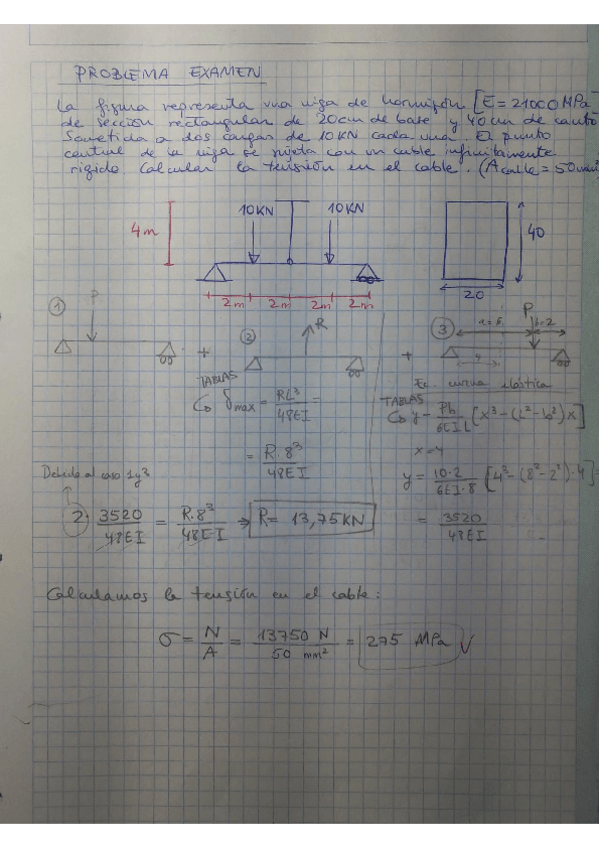 PROBLEMA EXAMEN
La figura representa una viga de hormigón [E = 21000 MPa
de sección rectangular de 20 cm de base y 40 cm de canto
Sometida a dos cargas de 10 KN cada una. El punto
central de la viga se sujeta con un cable infinitamente
rigido Calcular la tensión en el cable. (Acable = 50 mm²
4m 10KN 10KN 40
2m 2m 2m 2m 20
1 P
+ 2 R
+ 3 a=6 P b=2
Ec. curva elástica
TABLAS
δmax = RL³/48EI =
= R·8³/48EI
TABLAS
y = Pb/6EIL [x³-(L²-b²)x]
x=4
y = 10·2/6EI·8 [4³-(8²-2²)·4] =
= 3520/48EI
Debido al caso 1y3
2· 3520/48EI = R·8³/48EI → R= 13,75KN
Calculamos la tensión en el cable:
σ = N/A = 13750 N/50 mm² = 275 MPa